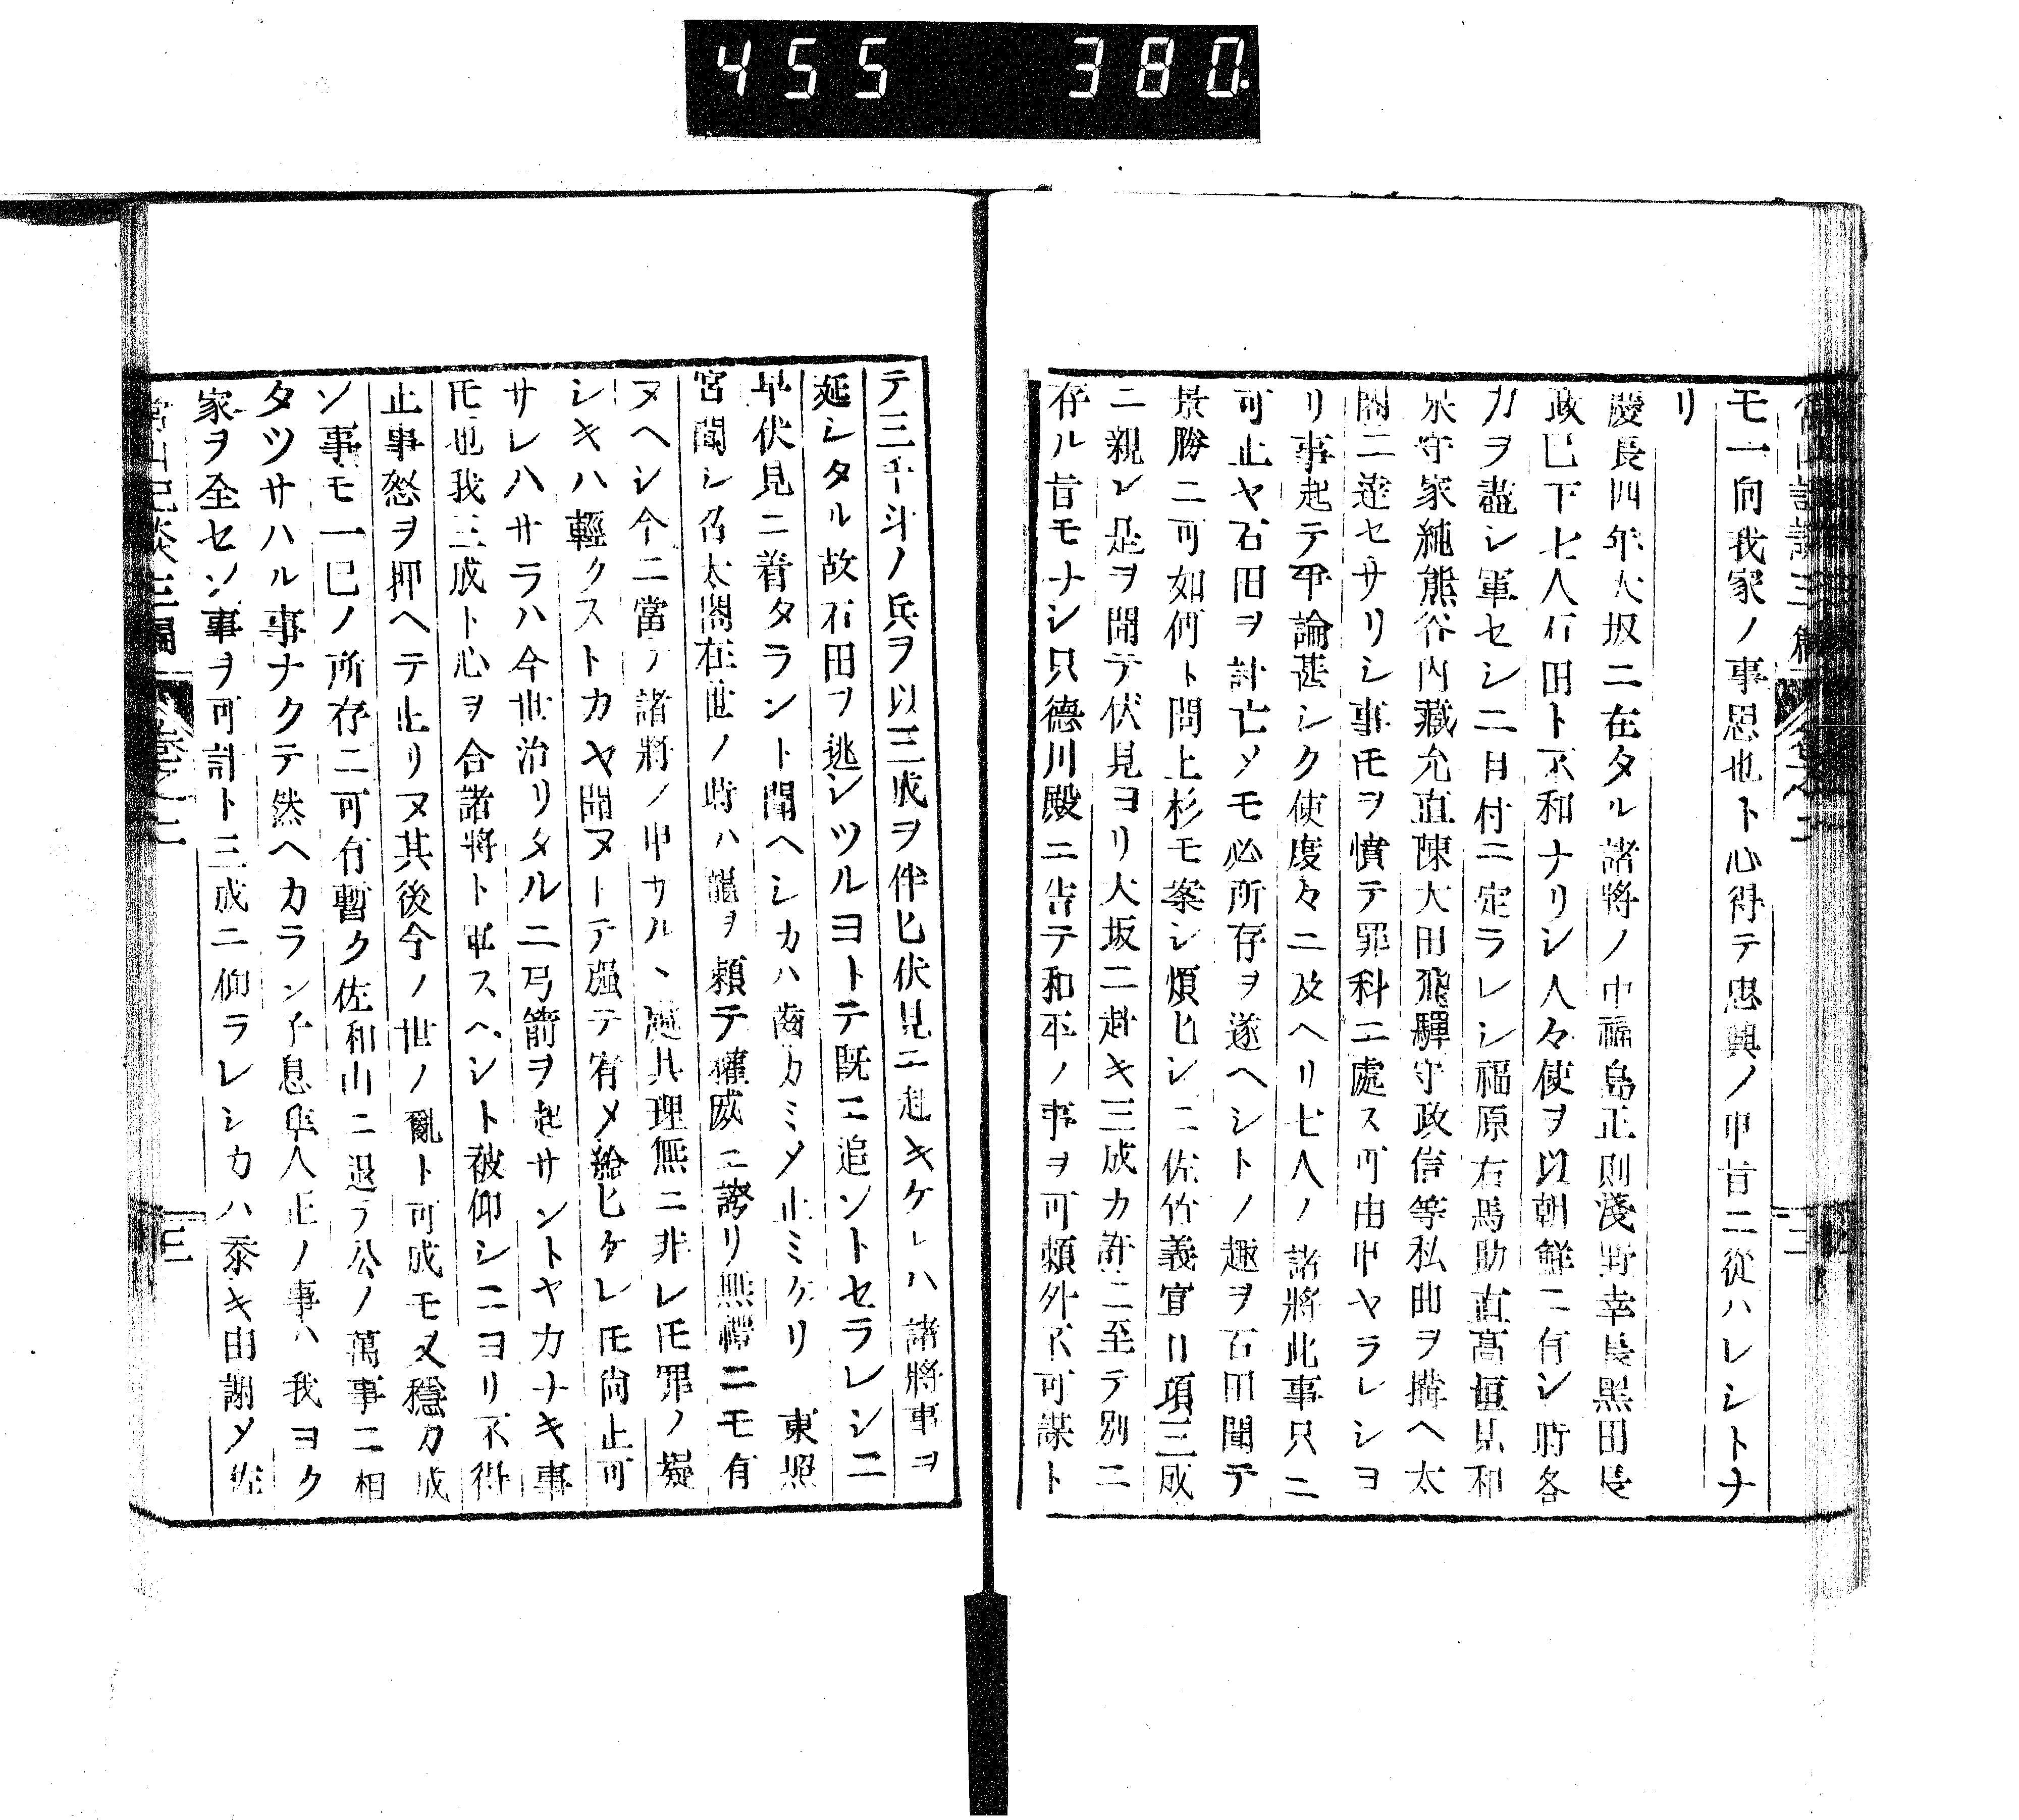 455 380
モ一向我家ノ事思也ト心得テ忠興ノ申旨ニ從ハレシトナ
リ
慶長四年大坂ニ在タル諸將ノ中福島正則淺野幸長黒田長
政已下七人石田ト不和ナリシ人々使ヲ以朝鮮ニ有シ時各
力ヲ盡シ軍セシニ目付ニ定ラレシ福原右馬助直髙垣見和
泉守家純熊谷内藏允直陳大田飛驒守政信等私曲ヲ搆ヘ太
閤ニ達セサリシ事𪜈ヲ憤テ罪科ニ處ス可由申ヤラレシヨ
リ事起テ爭論甚シク使度々ニ及ヘリ七人ノ諸將此事只ニ
可止ヤ石田ヲ討亡メモ必所存ヲ遂ヘシトノ趣ヲ石田聞テ
景勝ニ可如何ト問上杉モ案シ煩ヒシニ佐竹義宣日頃三成
ニ親レ是ヲ聞テ伏見ヨリ大坂ニ赴キ三成カ許ニ至テ別ニ
存ル旨モナシ只德川殿ニ告テ和平ノ事ヲ可頼外不可謀ト
テ三千斗ノ兵ヲ以三成ヲ伴ヒ伏見ニ赴キケレハ諸將事ヲ
延シタル故石田ヲ逃シツルヨトテ既ニ追ントセラレシニ
早伏見ニ着タラント聞ヘシカハ齒カミメ止ミケリ 東照
宮聞シ召太閤在世ノ時ハ寵ヲ頼テ權威ニ誇リ無禮ニモ有
ヌヘシ今ニ當テ諸將ノ申サルヽ處其理無ニ非レ𪜈罪ノ疑
シキハ輕クストカヤ聞ヌトテ强テ宥メ給ヒケレ𪜈尚止可
サレハサラハ今世治リタルニ弓箭ヲ起サントヤカナキ事
𪜈也我三成ト心ヲ合諸將ト軍スヘシト被仰シニヨリ不得
止事怒ヲ押ヘテ止リヌ其後今ノ世ノ亂ト可成モ又穩カ成
ン事モ一已ノ所存ニ可有暫ク佐和山ニ退テ公ノ萬事ニ相
タツサハル事ナクテ然ヘカラン子息隼人正ノ事ハ我ヨク
家ヲ全セン事ヲ可計ト三成ニ仰ラレシカハ忝キ由謝メ佐
三